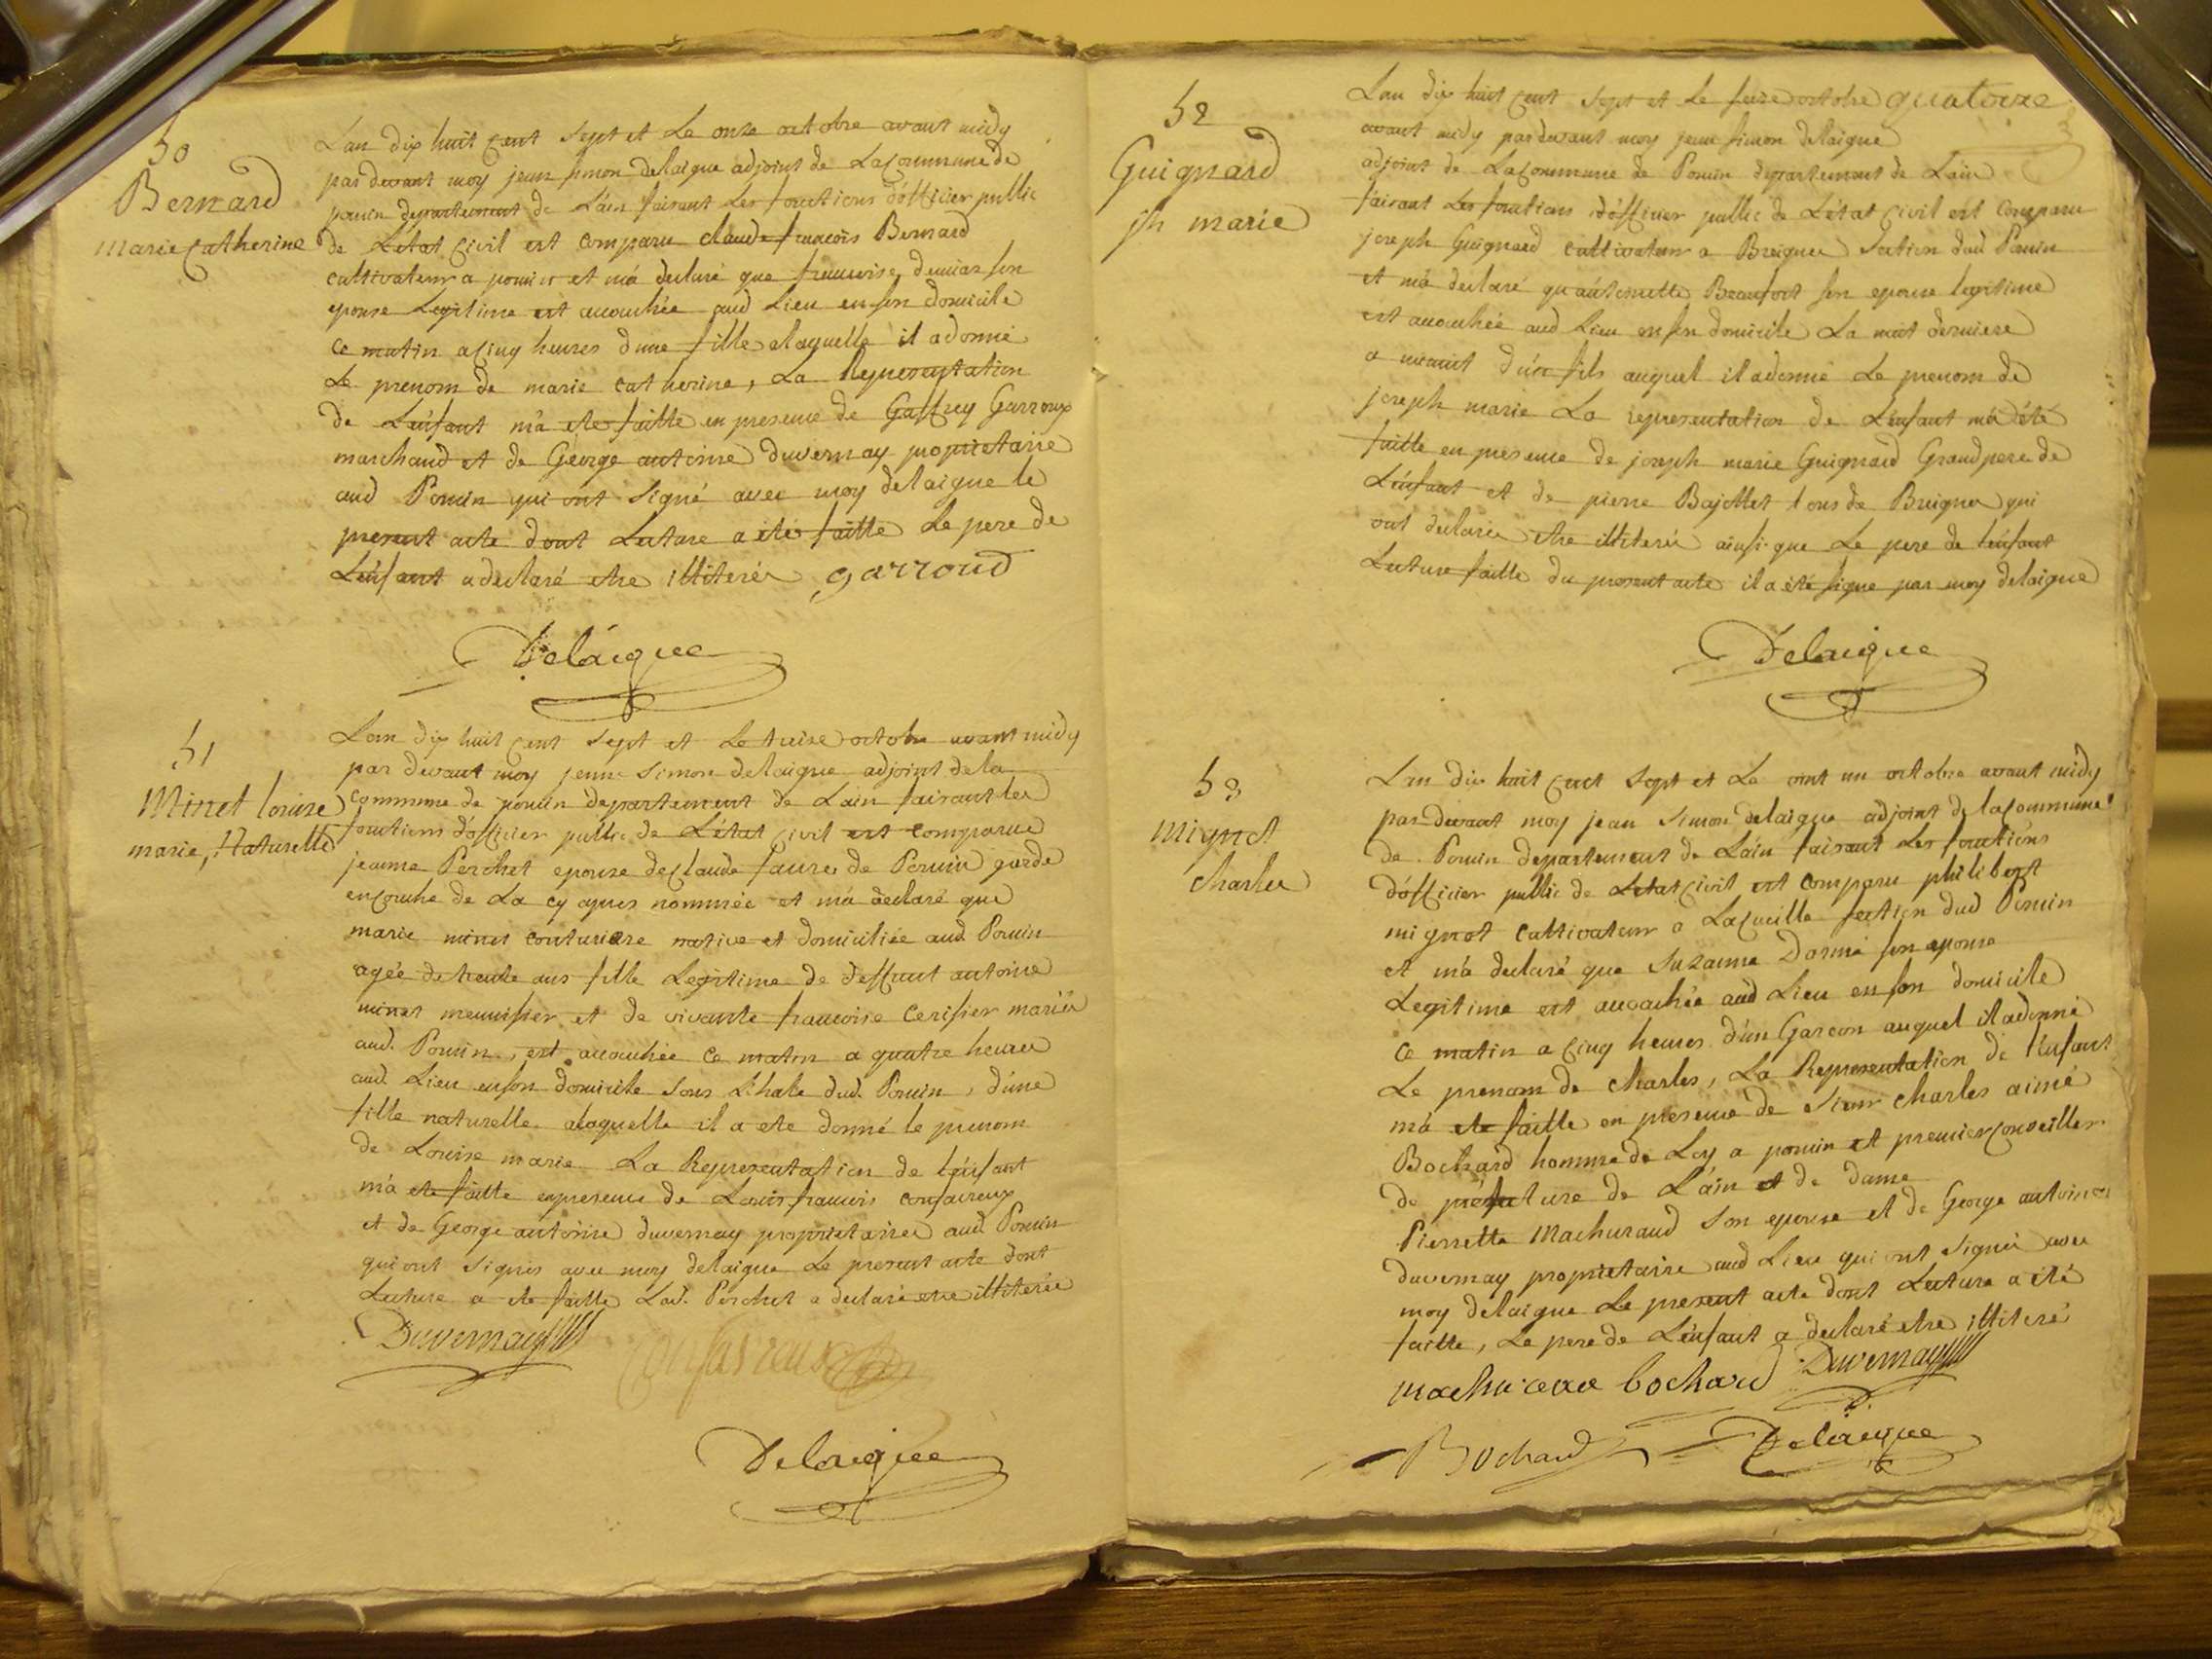 50
Bernard
marie Catherine
L'an dix huit cent sept et le onze octobre avant midy
par devant moy jean simon delaigue adjoint de la Commune de
poncin departement de L'ain faisant les fonctions d'officier public
de L'état Civil est comparu claude françois Bernard
cultivateur a poncin et m'a declaré que francoise son
epouse Legitime est accouchée aud Lieu en son domicile
ce matin a Cinq heures d'une fille a laquelle il a donné
Le prenom de marie catherine, La Representation
de L'enfant m'a ete faitte en presence de Garroux
marchand et de George antoine duvernay proprietaire
aud Poncin qui ont signé avec moy delaigue le
present acte dont Lecture a ete faitte Le pere de
L'enfant a declaré etre illiteré garroud
Delaigue
51
Minet louise
marie, Naturelle
L'an dix huit cent sept et Le treize octobre avant midy
par devant moy jean simon delaigue adjoint de la
commune de poncin departement de L'ain faisant les
fonctions d'officier public de L'état Civil est comparue
jeanne Perchet epouse de Claude faure de Poncin garde
en Couche de La cy apres nommée et m'a declaré que
marie minet couturiere native et domiciliée aud Poncin
agée de trente ans fille Legitime de deffunt antoine
minet menuisier et de vivante francoise Cerisier mariés
aud. Poncin, est accouchée ce matin a quatre heures
aud Lieu en son domicile sous L'hale dud. Poncin, d'une
fille naturelle a laquelle il a ete donné le prenom
de Louise marie La Representation de L'enfant
m'a ete faitte en presence de Louis francois confavreux
et de George antoine duvernay proprietaires aud Poncin
qui ont signés avec moy delaigue Le present acte dont
Lecture a ete faitte Lad. Perchet a declaré etre illiterée
Duvernay Confavreux
Delaigue
52
Guignard
jh marie
L'an dix huit cent sept et Le seize octobre quatorze
avant midy par devant moy jean simon delaigue
adjoint de La Commune de Poncin departement de L'ain
faisant Les fonctions d'officier public de L'état Civil est Comparu
joseph Guignard cultivateur a Breignes Section dud Poncin
et m'a declaré qu'antoinette Beaufort son epouse legitime
est accouchée aud Lieu en son domicile La nuit derniere
a minuit d'un fils auquel il a donné Le prenom de
joseph marie La representation de L'enfant m'a été
faitte en presence de joseph marie Guignard Grand pere de
L'enfant et de pierre Bajollet tous de Breignes qui
ont declarés etre illiterés ainsi que Le pere de L'enfant
Lecture faitte du present acte il a été signé par moy delaigue
Delaigue
53
Mignot
Charles
L'an dix huit cent sept et Le vint un octobre avant midy
par devant moy jean simon delaigue adjoint de la Commune
de Poncin departement de L'ain faisant Les fonctions
d'officier public de L'etat Civil est comparu philibert
mignot cultivateur a La Cueille section dud Poncin
et m'a declaré que Suzanne Dormé son epouse
Legitime est accouchée aud Lieu en son domicile
ce matin a Cinq heures d'un Garcon auquel il a donné
Le prenom de Charles, La Representation de L'enfant
m'a ete faitte en presence de sieur charles aimé
Bochard homme de Loy a poncin et premier Conseiller
de préfecture de L'ain et de dame
Pierrette Machuraud son epouse et de George antoine
duvernay proprietaire aud Lieu qui ont signés avec
moy delaigue Le present acte dont Lecture a été
faitte, Le pere de L'enfant a declaré etre illiteré
bochard Duvernay
Bochard Delaigue